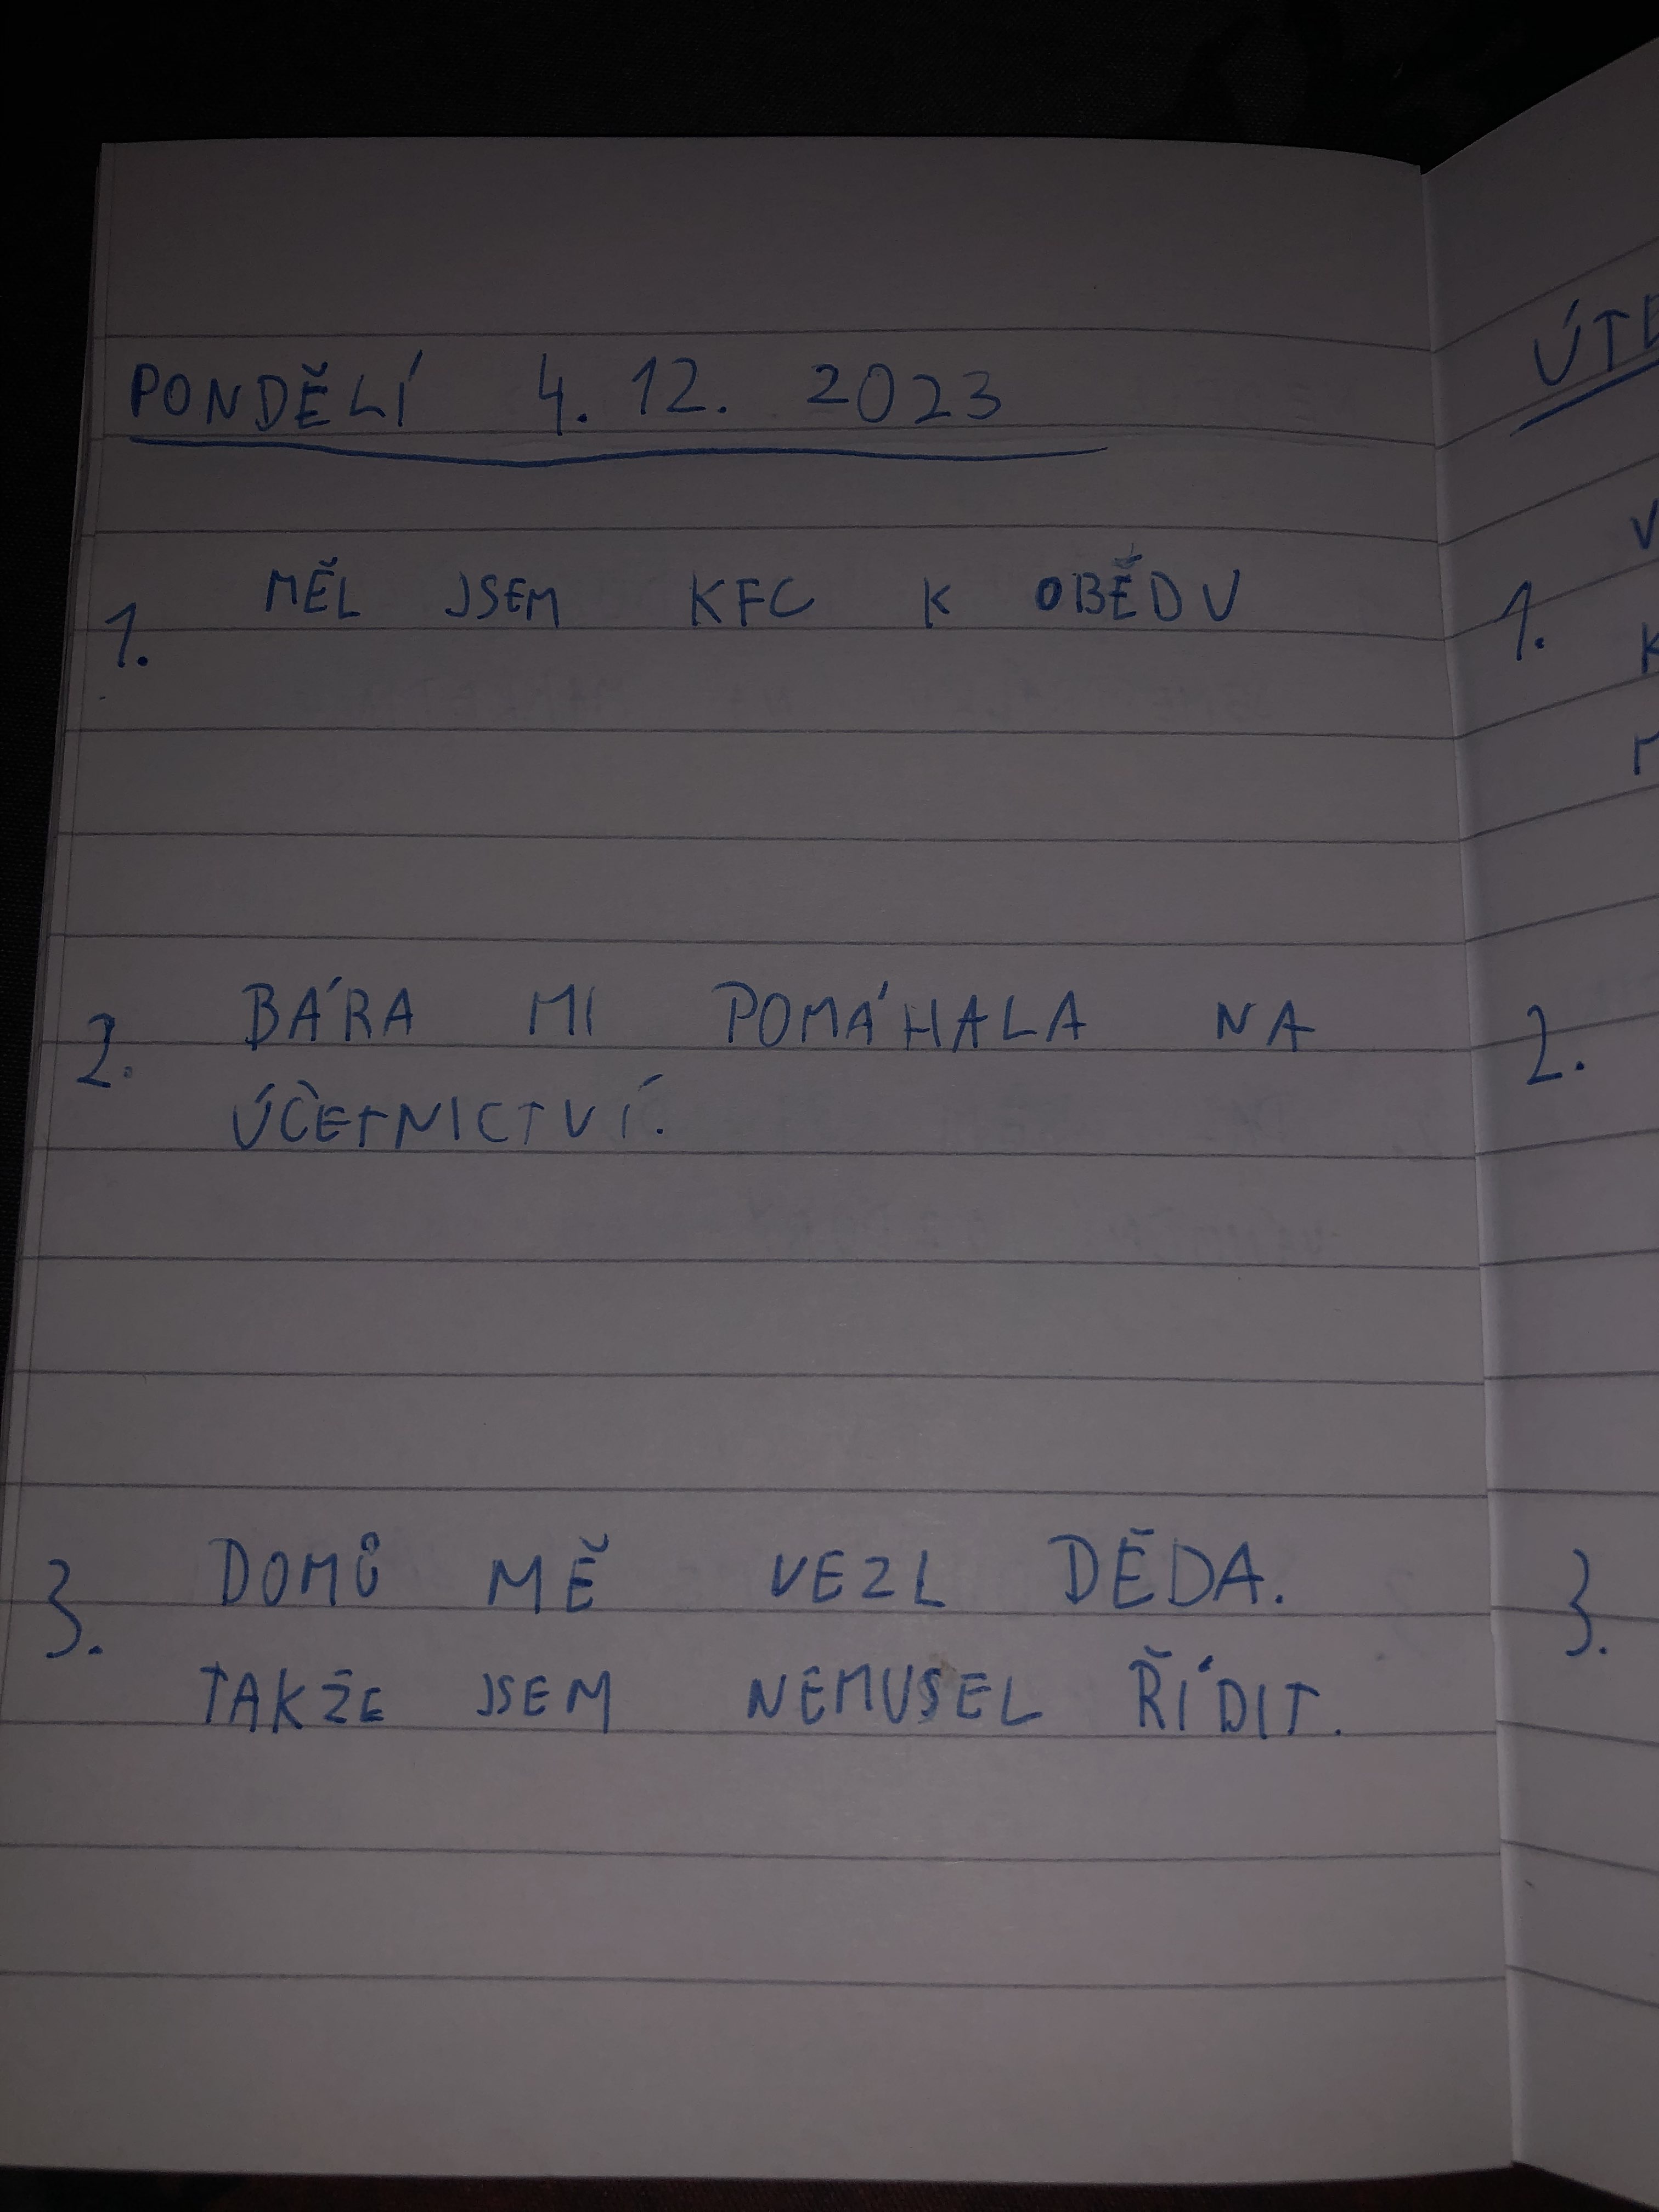 PONDĚLÍ 4. 12. 2023
1. MĚL JSEM KFC K OBĚDU
2. BÁRA MI POMÁHALA NA
ÚČETNICTVÍ.
3. DOMŮ MĚ VEZL DĚDA.
TAKŽE JSEM NEMUSEL ŘÍDIT.
1.
2.
3.